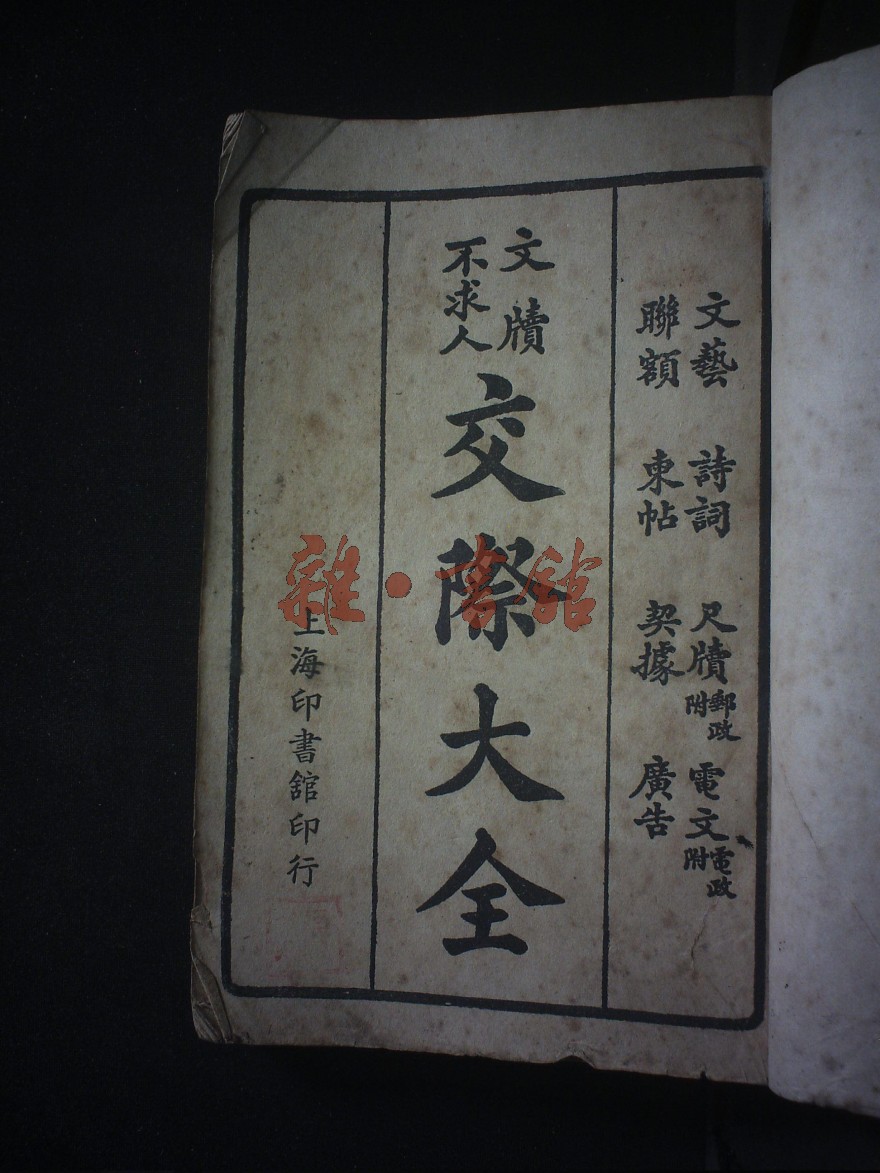 文藝 詩詞 尺牘附郵政 電文附電政
聯額 柬帖 契據 廣告
文牘
不求人
交際大全
上海印書館印行
雜·書館